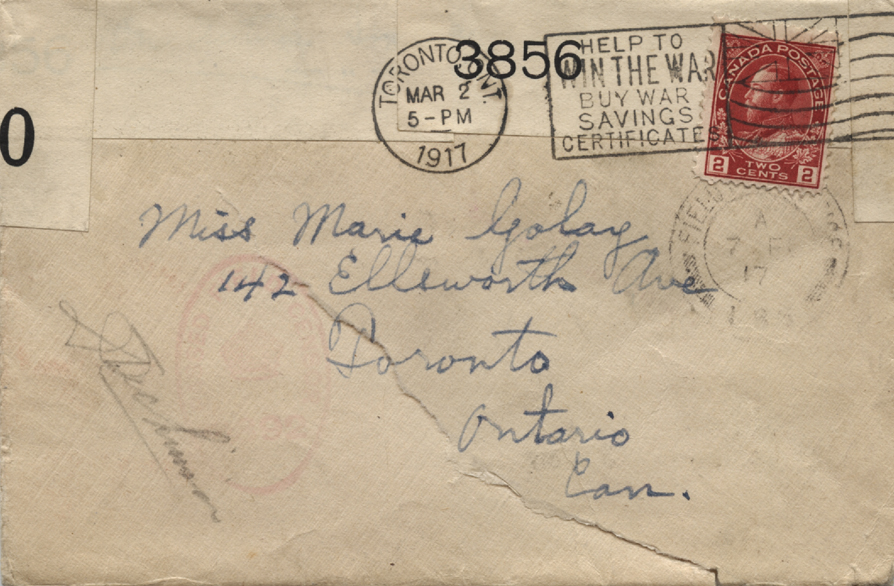 3856
TORONTO, ONT.
MAR 2
5-PM
1917
HELP TO
WIN THE WAR
BUY WAR
SAVINGS
CERTIFICATES
CANADA POSTAGE
2 TWO CENTS 2
0
FIELD
A
17
Miss Marie Golay
142 Ellsworth Ave
Toronto
Ontario
Can.